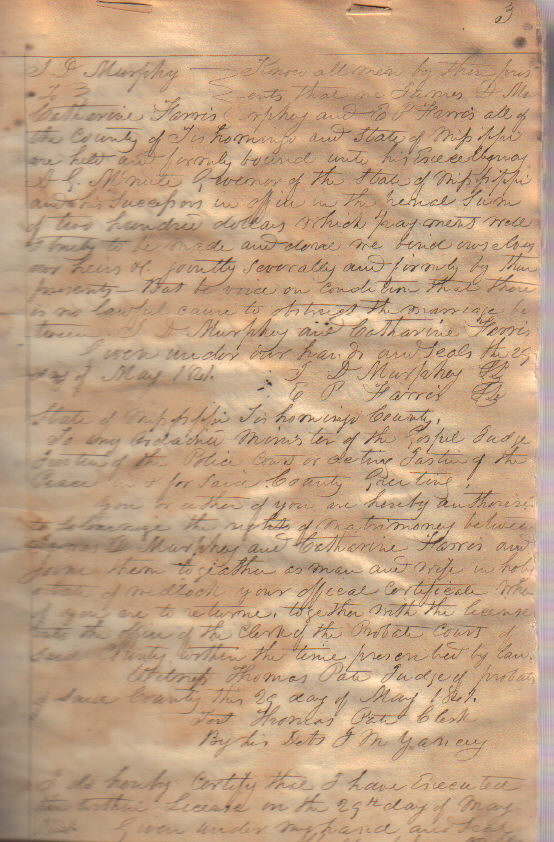 3
J D Murphy Know all men by these pres
ents that we James D Mu
Catharine Harris rphey and E P Harris all of
the County of Tishomingo and State of Mississippi
are held and firmly bound unto his Excellency
Governor of the State of Mississippi
and his Successors in office in the Penal Sum
of two hundred dollars which payment well
& truly to be made and done we bind ourselves
our heirs &c jointly Severally and firmly by these
presents But be void on Condition that there
is no lawful cause to obstruct the marriage be
tween J D Murphey and Catharine Harris
Given under our hands and Seals the 29
day of May J D Murphey
E P Harris
State of Mississippi Tishomingo County.
To any ordained Minister of the Gospel Judge
Justice of the Police Court or acting Justice of the
Peace for Said County Greeting
you or either of you are hereby authorised
to Solemnize the rights of matrimoney between
James D Murphey and Catharine Harris and
joine them together as man and wife in holy
state of wedlock your offical Certificate Where
of you are to returne, together with the license
into the office of the Clerk of the Probate Court of
Said County within the time prescribed by law.
Witness Thomas Pate Judge of probate
of Said County this 29 day of May
Test Thomas Pate Clerk
By his Dept J M Yancey
I do hereby Certify that I have Executed
the within License on the 29th day of May
Given under my hand and Seal